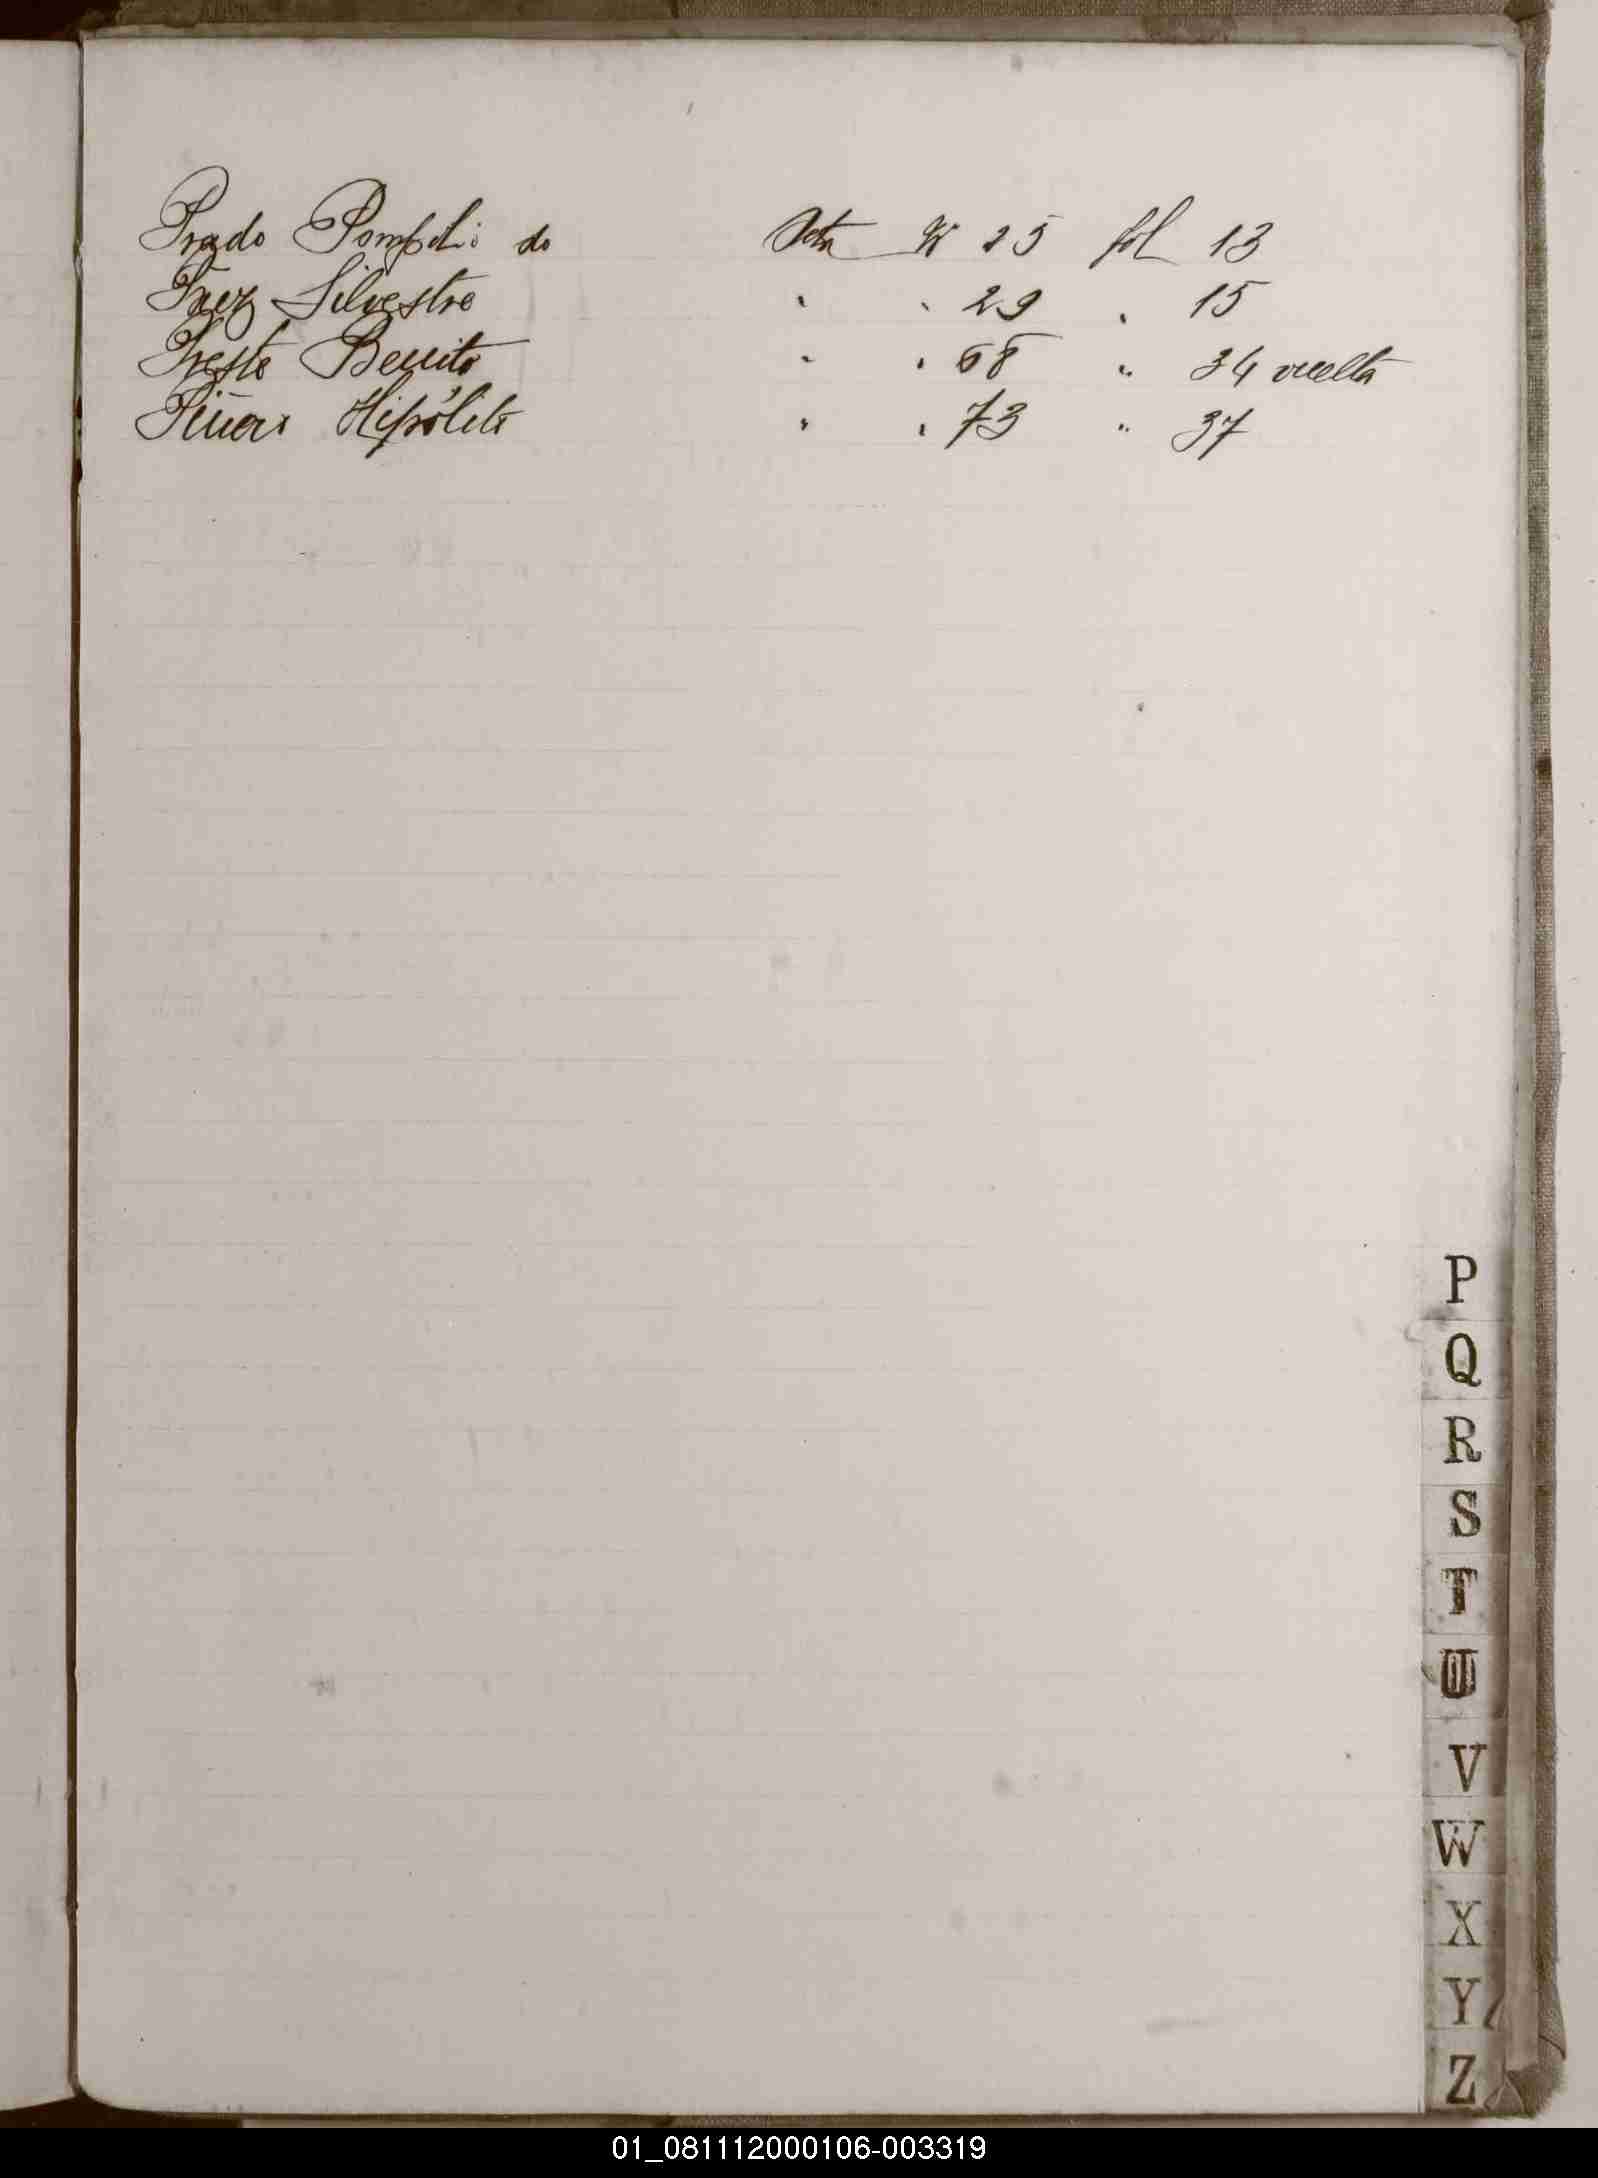 Prado Pompilio do Acta Nº 25 fol 13
Paez Silvestre " " 29 " 15
Preste Benito " " 68 " 34 vuelta
Piñero Hipólito " " 73 " 37
P
Q
R
S
T
U
V
W
X
Y
Z
01_081112000106-003319